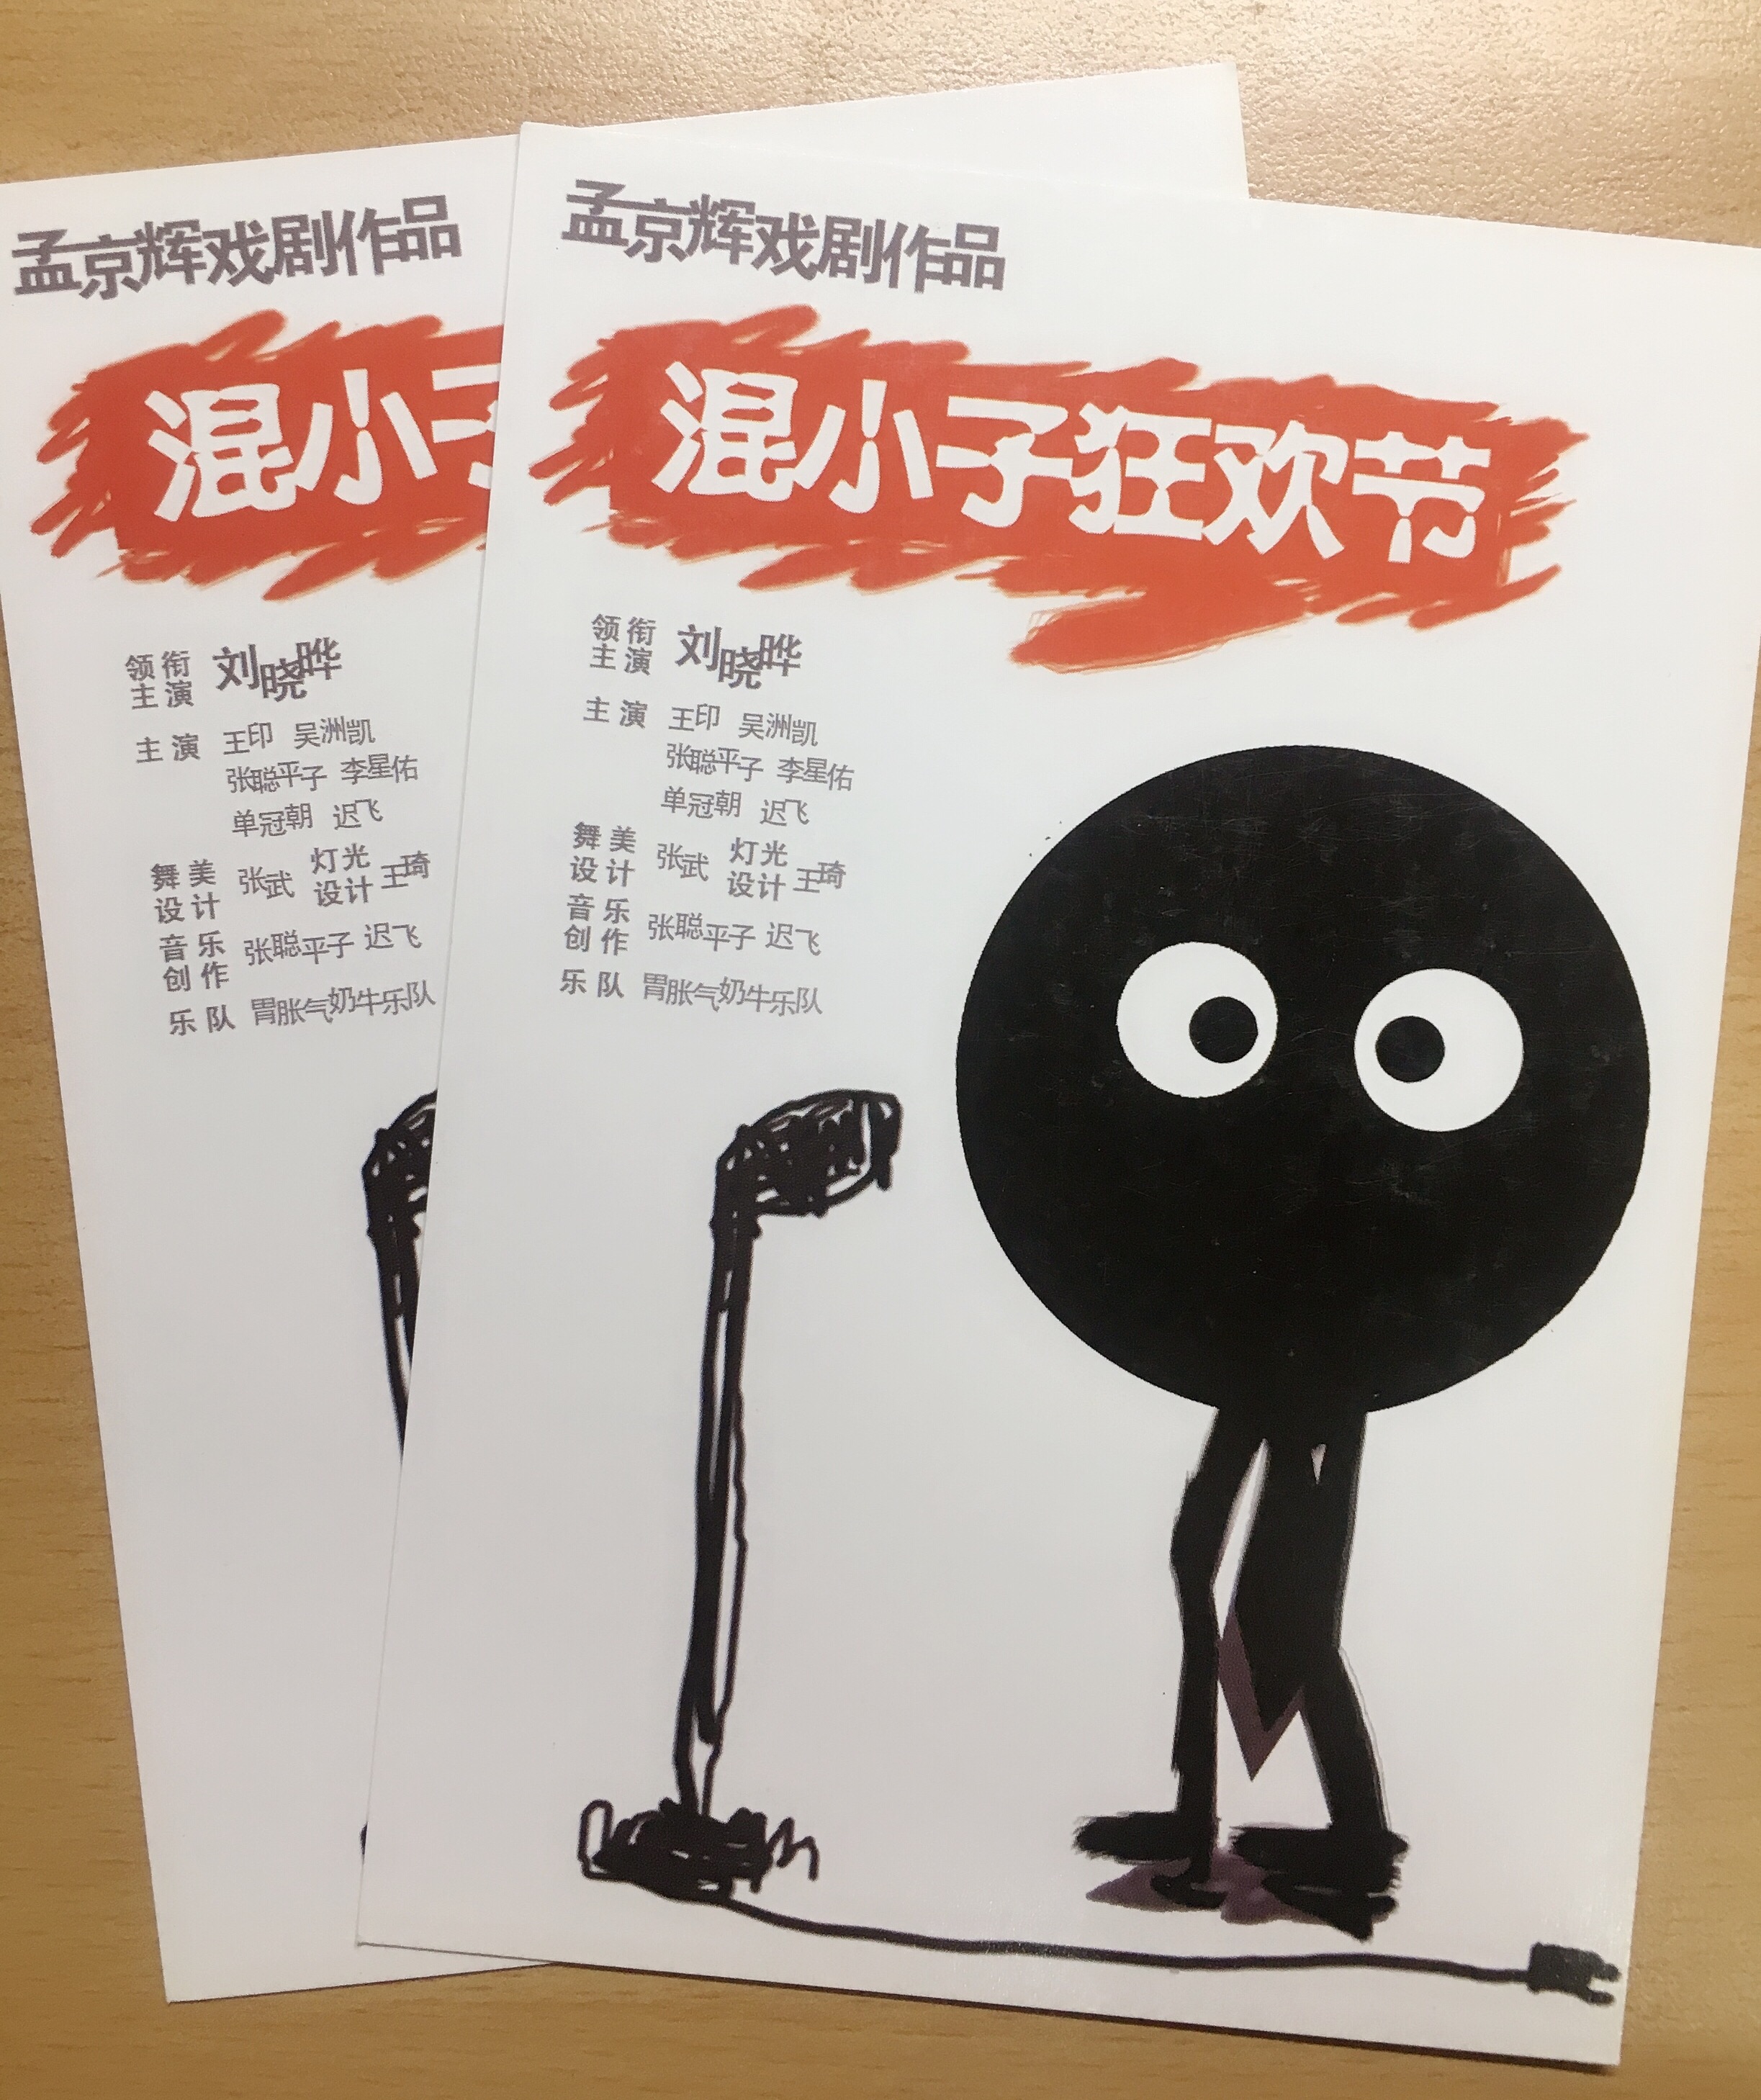 孟京辉戏剧作品
混小子
领衔主演 刘晓晔
主演 王印 吴洲凯
张聪平子 李星佑
单冠朝 迟飞
舞美设计 张武 灯光设计 王琦
音乐创作 张聪平子 迟飞
乐队 胃胀气奶牛乐队
孟京辉戏剧作品
混小子狂欢节
领衔主演 刘晓晔
主演 王印 吴洲凯
张聪平子 李星佑
单冠朝 迟飞
舞美设计 张武 灯光设计 王琦
音乐创作 张聪平子 迟飞
乐队 胃胀气奶牛乐队